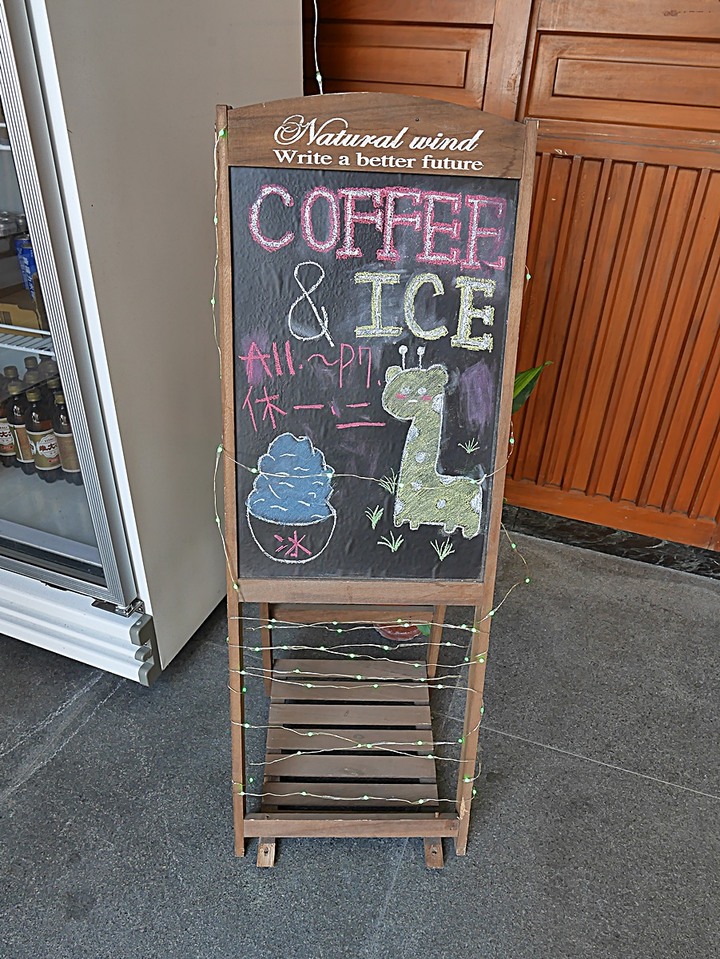 Natural wind
Write a better future
COFFEE
& ICE
A11.~P7.
休一.二
冰